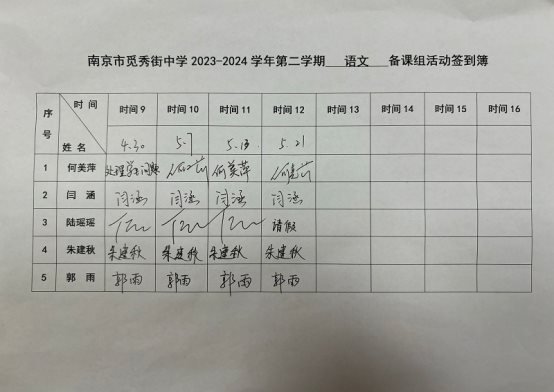 南京市觅秀街中学 2023-2024 学年第二学期 语文 备课组活动签到簿
序号 时间 姓名 时间 9 时间 10 时间 11 时间 12 时间 13 时间 14 时间 15 时间 16
4.30 5.7 5.13. 5.21
1 何美萍 处理学生问题 何美萍 何美萍 何美萍
2 闫涵 闫涵 闫涵 闫涵 闫涵
3 陆瑶瑶 请假
4 朱建秋 朱建秋 朱建秋 朱建秋 朱建秋
5 郭雨 郭雨 郭雨 郭雨 郭雨